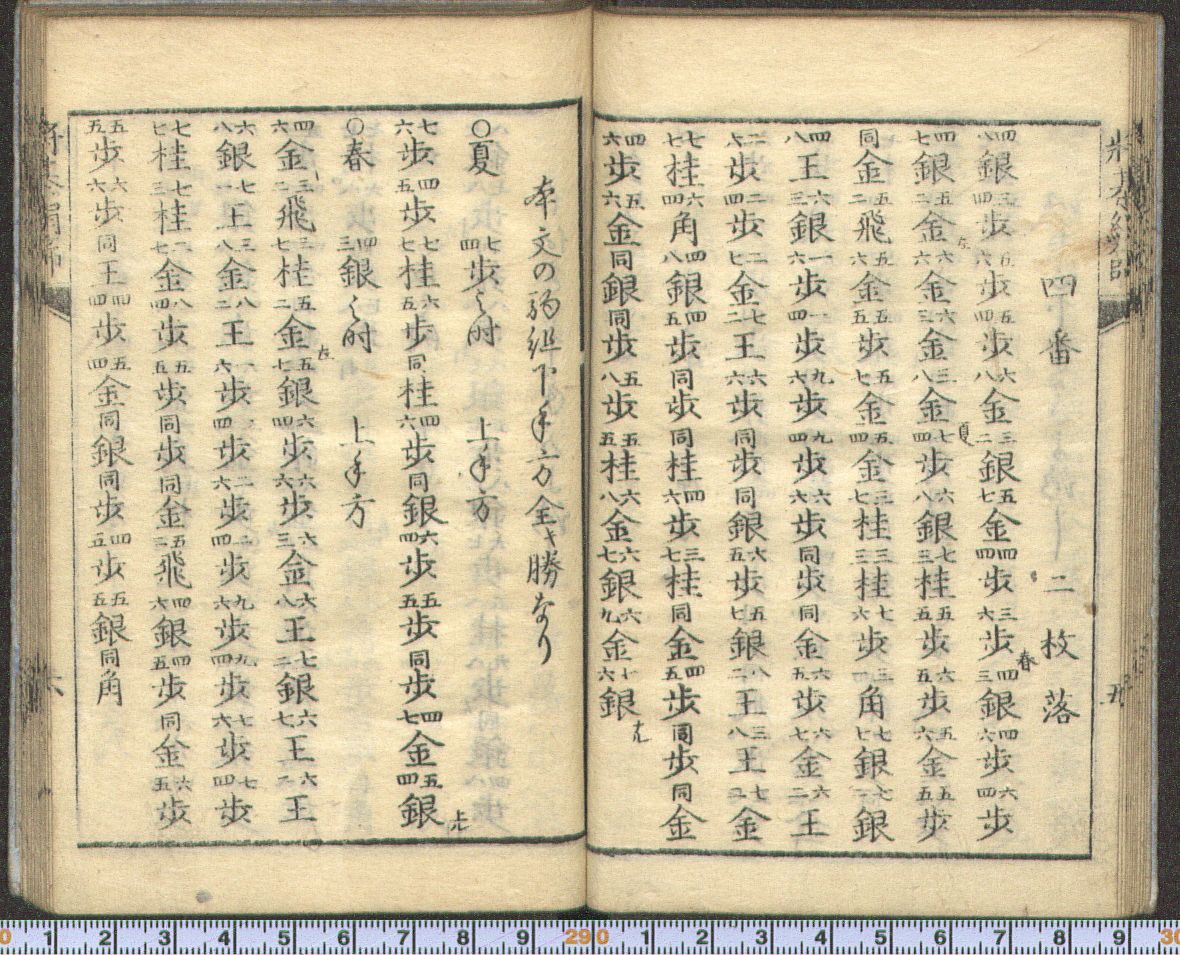 四十番　二枚落
四八銀 三四歩 五六歩 五四歩 六八金 三二銀 五七金 四四歩 三六歩 春 四三銀 四六歩 六四歩
四七銀 五二金左 六六金 六三金 三八金 七四歩 夏 六八銀 七三桂 五五歩 六五歩 五六金 五五歩
同金 五二飛 五六金 五五歩 五七金 五四金 三七桂 三三桂 七六歩 角 七七銀 七二銀
四八王 六三銀 一六歩 一四歩 九六歩 九四歩 六六歩 同歩 同金 六五歩 六七金 六二王
二六歩 二四歩 二七金 七二王 六六歩 同歩 同銀 六五歩 五七銀 八二王 三八王 七二金
七七桂 六四角 四八銀 四五歩 同歩 同桂 四六歩 三七桂 同金 四五歩 同歩 同金
四六歩 五六金 同銀 同歩 五八歩 五五桂 六八金 六七銀 六九金 七六銀
本文の駒組下手方全き勝なり
〇夏 七四歩之时　上手方
七六歩 四五歩 七七桂 六五歩 同桂 四六歩 同銀 六四歩 五五歩 同歩 四七金 五四銀
〇春 四三銀之时　上手方
四六金 三二飛 三七桂 五二金左 五七銀 六四歩 六六歩 六三金 六八王 七二銀 六七王 六二王
六八銀 七一王 三八金 八二王 一六歩 一四歩 二六歩 二四歩 九六歩 九四歩 七六歩 七四歩
七七桂 七三桂 二七金 八四歩 五五歩 同歩 同金 五二飛 四六銀 四五歩 同金 六五歩
五五歩 六六歩 同王 四四歩 五四金 同銀 同歩 四五歩 五五銀 同角